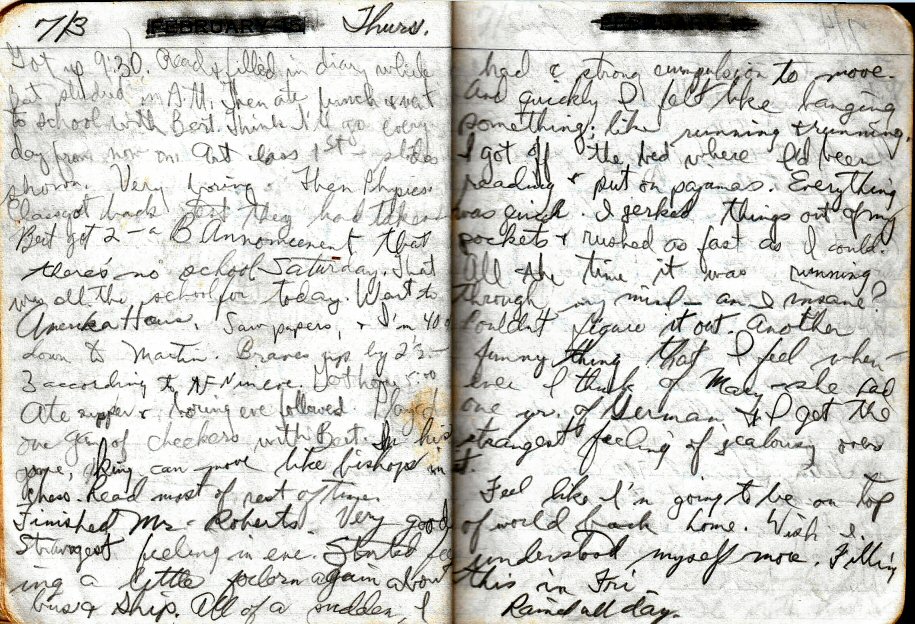 7/3 FEBRUARY Thurs.
Got up 9:30. Read & filled in diary while
Bert studied in A.M. Then ate lunch & went
to school with Bert. Think I'll go every
day from now on. Art class 1st - slides
shown. Very boring. Then Physics
Class got back test they had taken
Bert got 2 - a B Announcement that
there's no school Saturday. That
was all the school for today. Went to
Amerika Haus. Saw papers, & I'm 40
down to Martin. Braves up by 2½-
3 according to AFN
Ate supper & boring eve followed. Played
one game of checkers with Bert. In his
game, king can move like bishops in
chess. Read most of rest of time.
Finished Mr. Roberts. Very good
Strangest feeling in eve. Started feel
ing a little again about
bus & ship. All of a sudden, I
had a strong compulsion to move.
And quickly I felt like banging
something; like running & running.
I got off the bed where I'd been
reading & put on pajamas. Everything
was quick. I jerked things out of my
pockets & rushed as fast as I could.
All the time it was running
through my mind - am I insane?
Couldn't figure it out. Another
funny thing that I feel when-
ever I think of Mary - she had
one yr. of German & I get the
strangest feeling of jealousy over
it.
Feel like I'm going to be on top
of world back home. Wish I
understood myself more. Filling
this in Fri.
Rained all day.